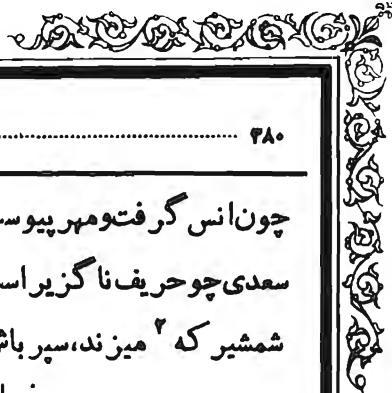 ۳۸۰
چون انس گرفت و مهر پیوست
سعدی چو حریف ناگزیر است
شمشیر که ۲ میزند، سپر باش